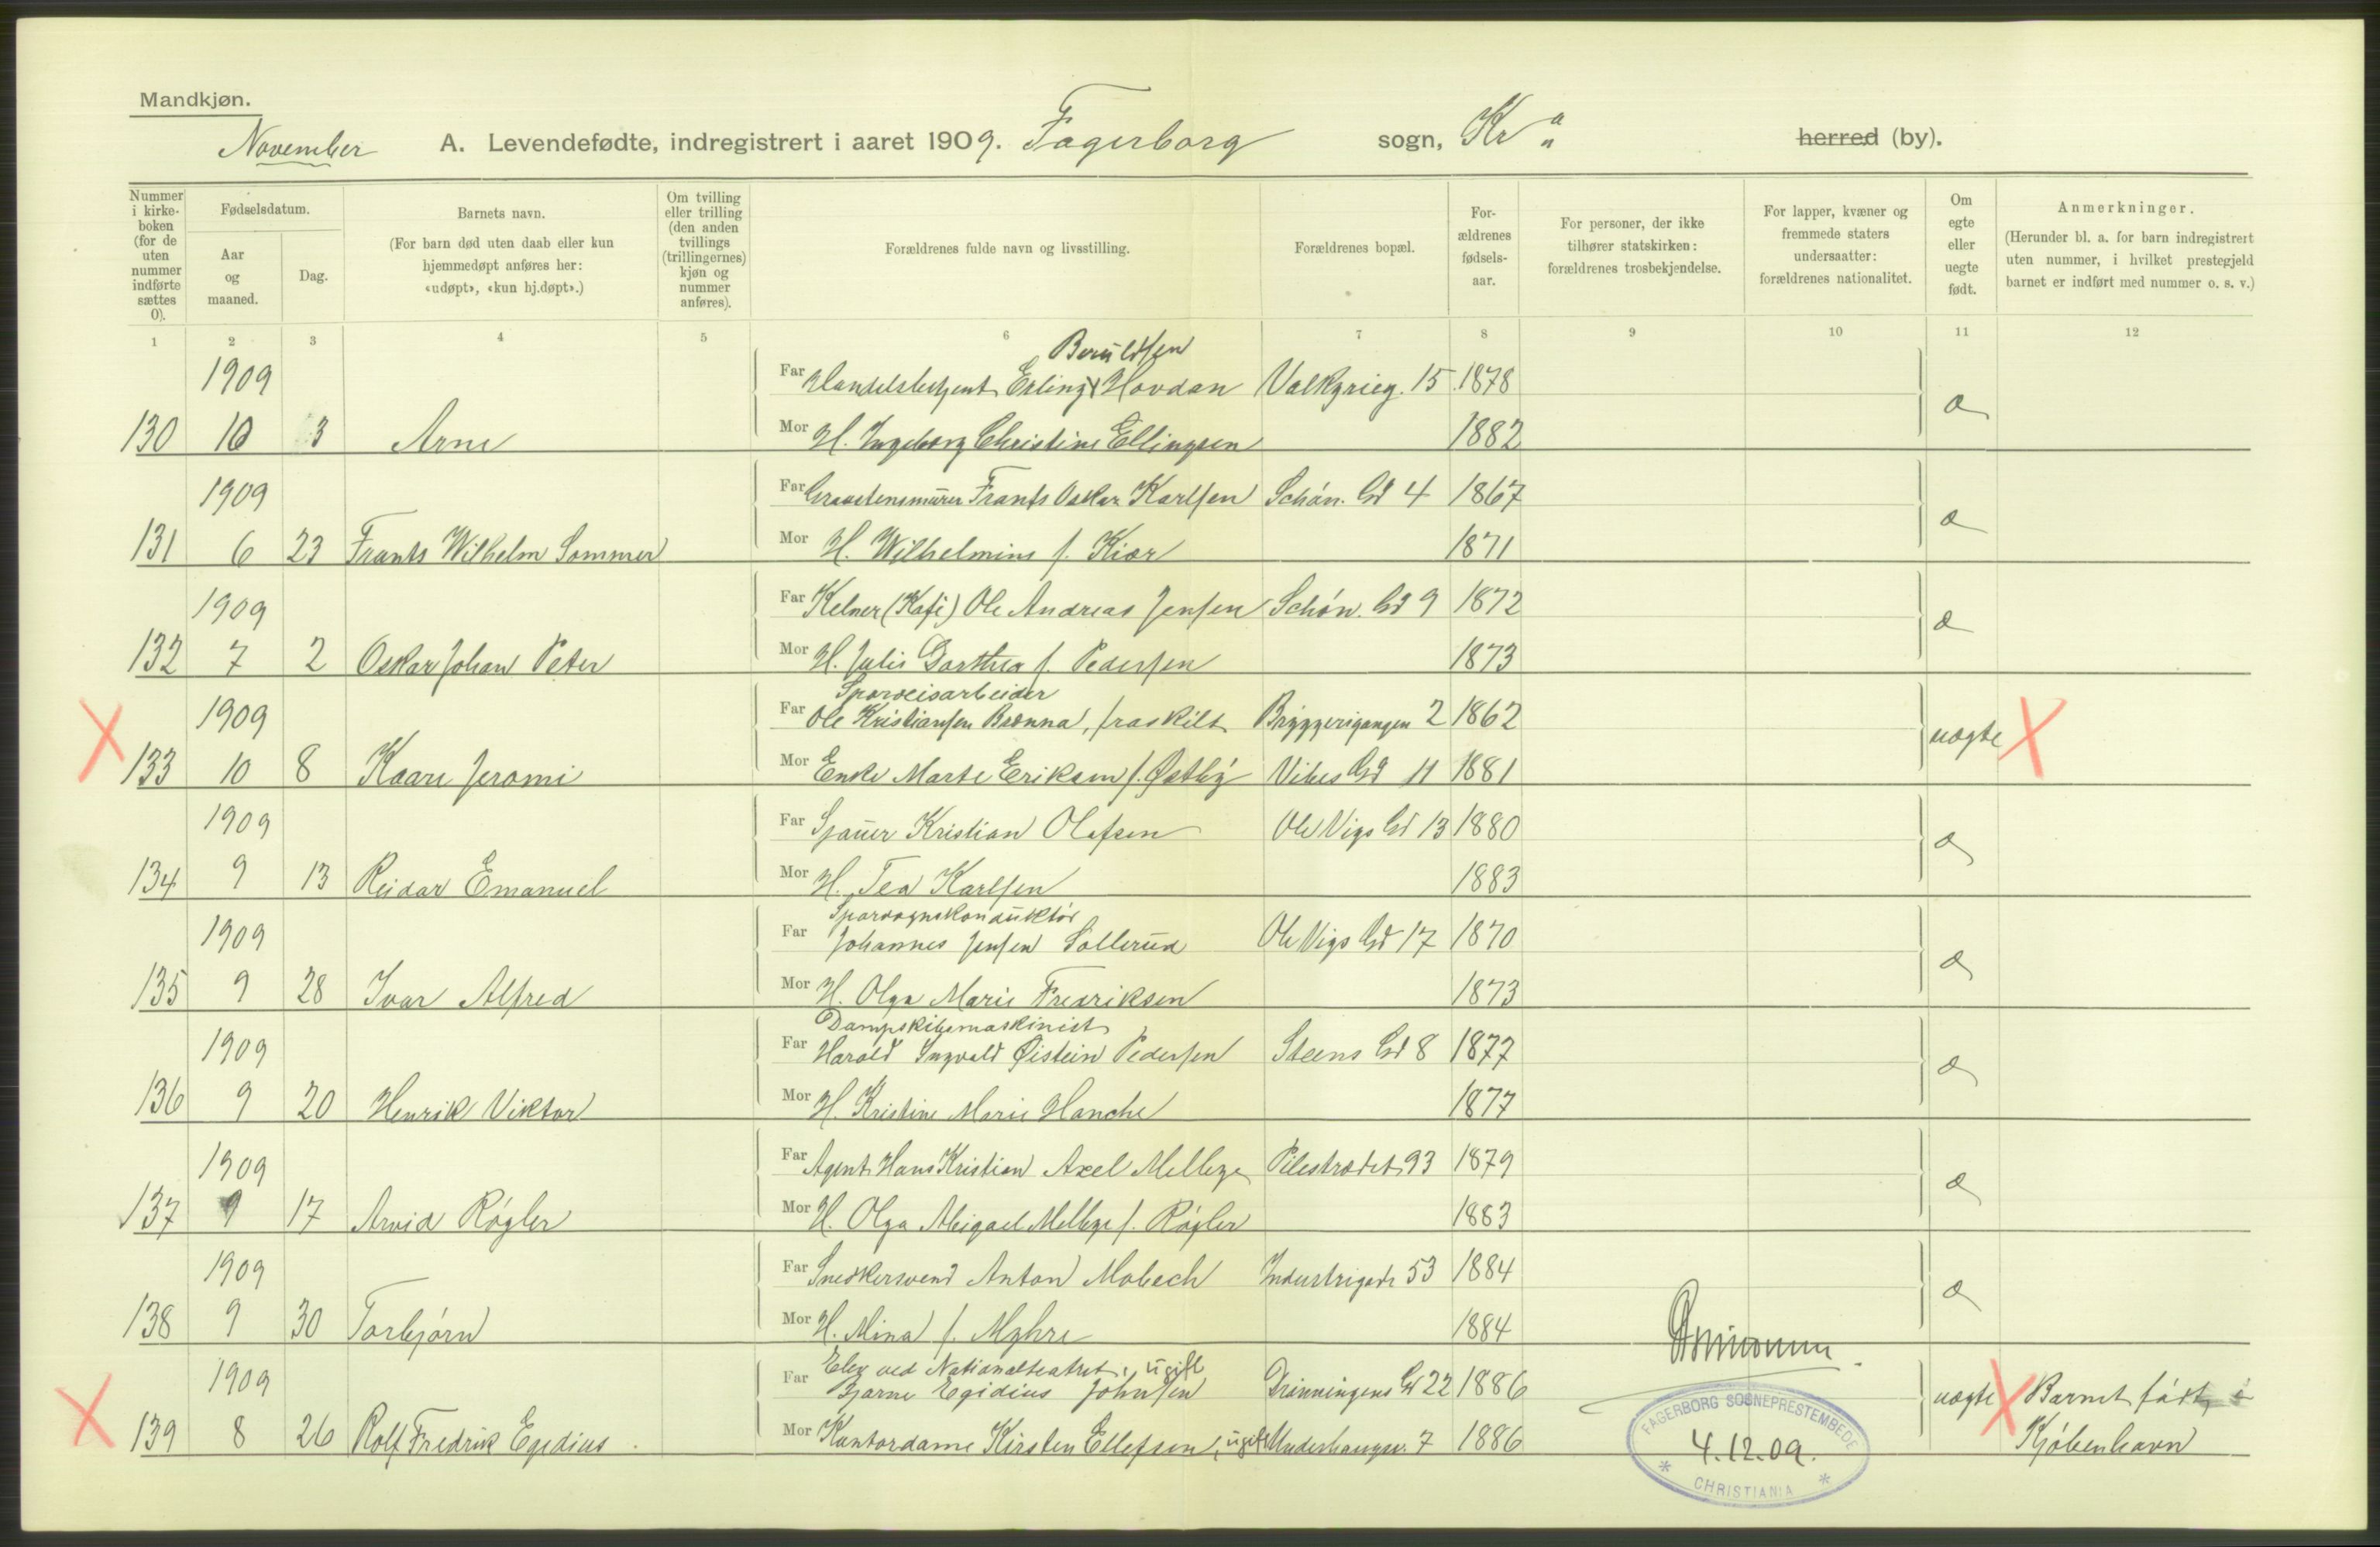 Mandkjøn.
November A. Levendefødte, indregistrert i aaret 1909. Fagerborg sogn, Kr a herred (by).
Nummer i kirkeboken (for de uten nummer indførte sættes 0).
Fødselsdatum.
Aar og maaned.
Dag.
Barnets navn.
(For barn død uten daab eller kun hjemmedøpt anføres her: «udøpt», «kun hj.døpt».)
Om tvilling eller trilling (den anden tvillings (trillingernes) kjøn og nummer anføres).
Forældrenes fulde navn og livsstilling.
Forældrenes bopæl.
Forældrenes fødselsaar.
For personer, der ikke tilhører statskirken: forældrenes trosbekjendelse.
For lapper, kvæner og fremmede staters undersaatter: forældrenes nationalitet.
Om egte eller uegte født.
Anmerkninger.
(Herunder bl. a. for barn indregistrert uten nummer, i hvilket prestegjeld barnet er indført med nummer o. s. v.)
1 2 3 4 5 6 7 8 9 10 11 12
Berüldsen
1909 Far Handelsbetjent Erling Hovdan Valkyrieg. 15 1878
130 10 3 Arne Mor H. Ingeborg Christine Ellingsen 1882
1909 Far Frants Oskar Karlsen Schøn. Gd 4 1867
131 6 23 Frants Wilhelm Sommer Mor H. Wilhelmine f. Kiær 1871 æ
1909 Far Kelner (Kafé) Ole Andreas Jensen Schøn. Gd 9 1872
132 7 2 Oskar Johan Peter Mor H. Julie Dorthea f. Pedersen 1873 æ
Sporveisarbeider
1909 Far Ole Kristiansen Brenna, fraskilt Bryggerigangen 2 1862
133 10 8 Kaare Jeromi Mor Enke Marte Eriksen f. Østby Vibes Gd 11 1881 uægte
1909 Far Kristian Olafsen Ole Vigs Gd 13 1880
134 9 13 Reidar Emanuel Mor H. Tea Karlsen 1883 æ
Sporvognskonduktør
1909 Far Johannes Jensen Sollerud Ole Vigs Gd 17 1870
135 9 28 Ivar Alfred Mor H. Olga Marie Fredriksen 1873 æ
Dampskibsmaskinist
1909 Far Harald Ingvald Øistein Pedersen Steens Gd 8 1877
136 9 20 Henrik Viktor Mor H. Kristine Marie Hanche 1877 æ
1909 Far Agent Hans Kristian Axel Mellbye Pilestrædet 93 1879
137 9 17 Arvid Røgler Mor H. Olga Abigael Mellbye f. Røgler 1883 æ
1909 Far Snedkersvend Anton Mobech Industrigade 53 1884
138 9 30 Torbjørn Mor H. Mina f. Myhre 1884 æ
Elev ved Nationalteatret, ugift
1909 Far Bjarne Egidius Johnsen Dronningens Gd 22 1886
139 8 26 Rolf Fredrik Egedius Mor Kontordame Kirsten Ellefsen, ugift Underhaugsv. 7 1886 uægte Barnet født i Kjøbenhavn
FAGERBORG SOGNEPRESTEMBEDE
4.12.09.
* CHRISTIANIA *